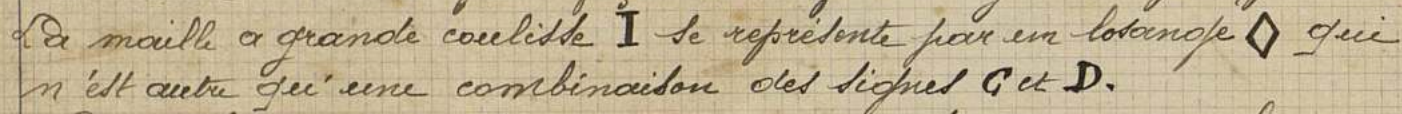 La maille a grande coulisse I se représente par un losange ◊ qui
n'est autre qu'une combinaison des signes C et D.